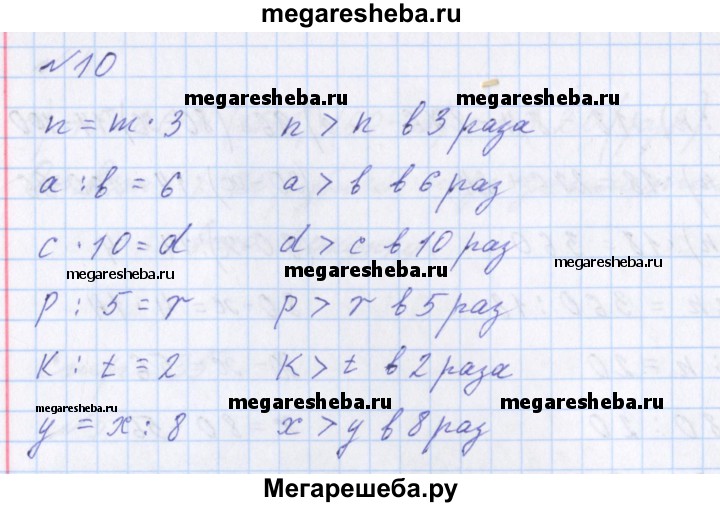 megaresheba.ru
№10
megaresheba.ru megaresheba.ru
n = m · 3 n > n в 3 раза
a : в = 6 a > в в 6 раз
c · 10 = d d > c в 10 раз
megaresheba.ru megaresheba.ru megaresheba.ru
p : 5 = r p > r в 5 раз
к : t = 2 к > t в 2 раза
megaresheba.ru megaresheba.ru megaresheba.ru
y = x : 8 x > y в 8 раз
Мегарешеба.ру